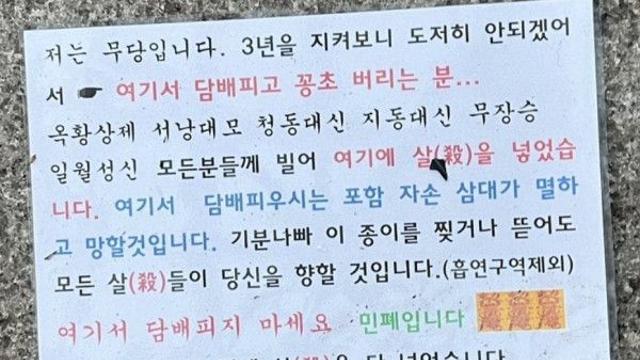 저는 무당입니다. 3년을 지켜보니 도저히 안되겠어
서 ☛ 여기서 담배피고 꽁초 버리는 분...
옥황상제 서낭대모 청동대신 지동대신 무장승
일월성신 모든분들께 빌어 여기에 살(殺)을 넣었습
니다. 여기서 담배피우시는 포함 자손 삼대가 멸하
고 망할것입니다. 기분나빠 이 종이를 찢거나 뜯어도
모든 살(殺)들이 당신을 향할 것입니다.(흡연구역제외)
여기서 담배피지 마세요 민폐입니다